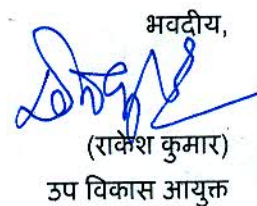 भवदीय,
(राकेश कुमार)
उप विकास आयुक्त